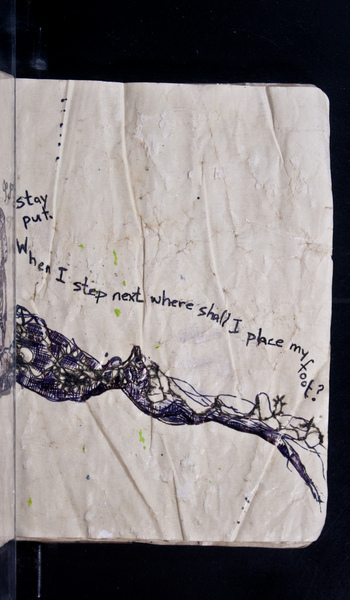 stay
put.
When I step next where shall I place my foot?